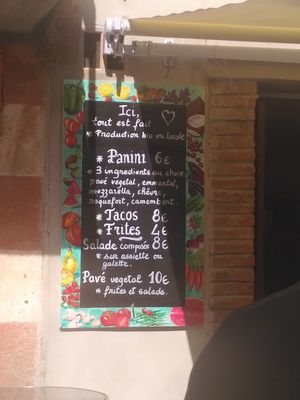 Ici,
tout est fait
* Production bio ou locale
* Panini 6€
* 3 ingredients au choix,
pavé vegetal, emmental,
mozzarella, chèvre,
roquefort, camembert.
* Tacos 8€
* Frites 4€
Salade composée 8€
* sur assiette ou
galette.
Pavé vegetal 10€
* frites et salade.